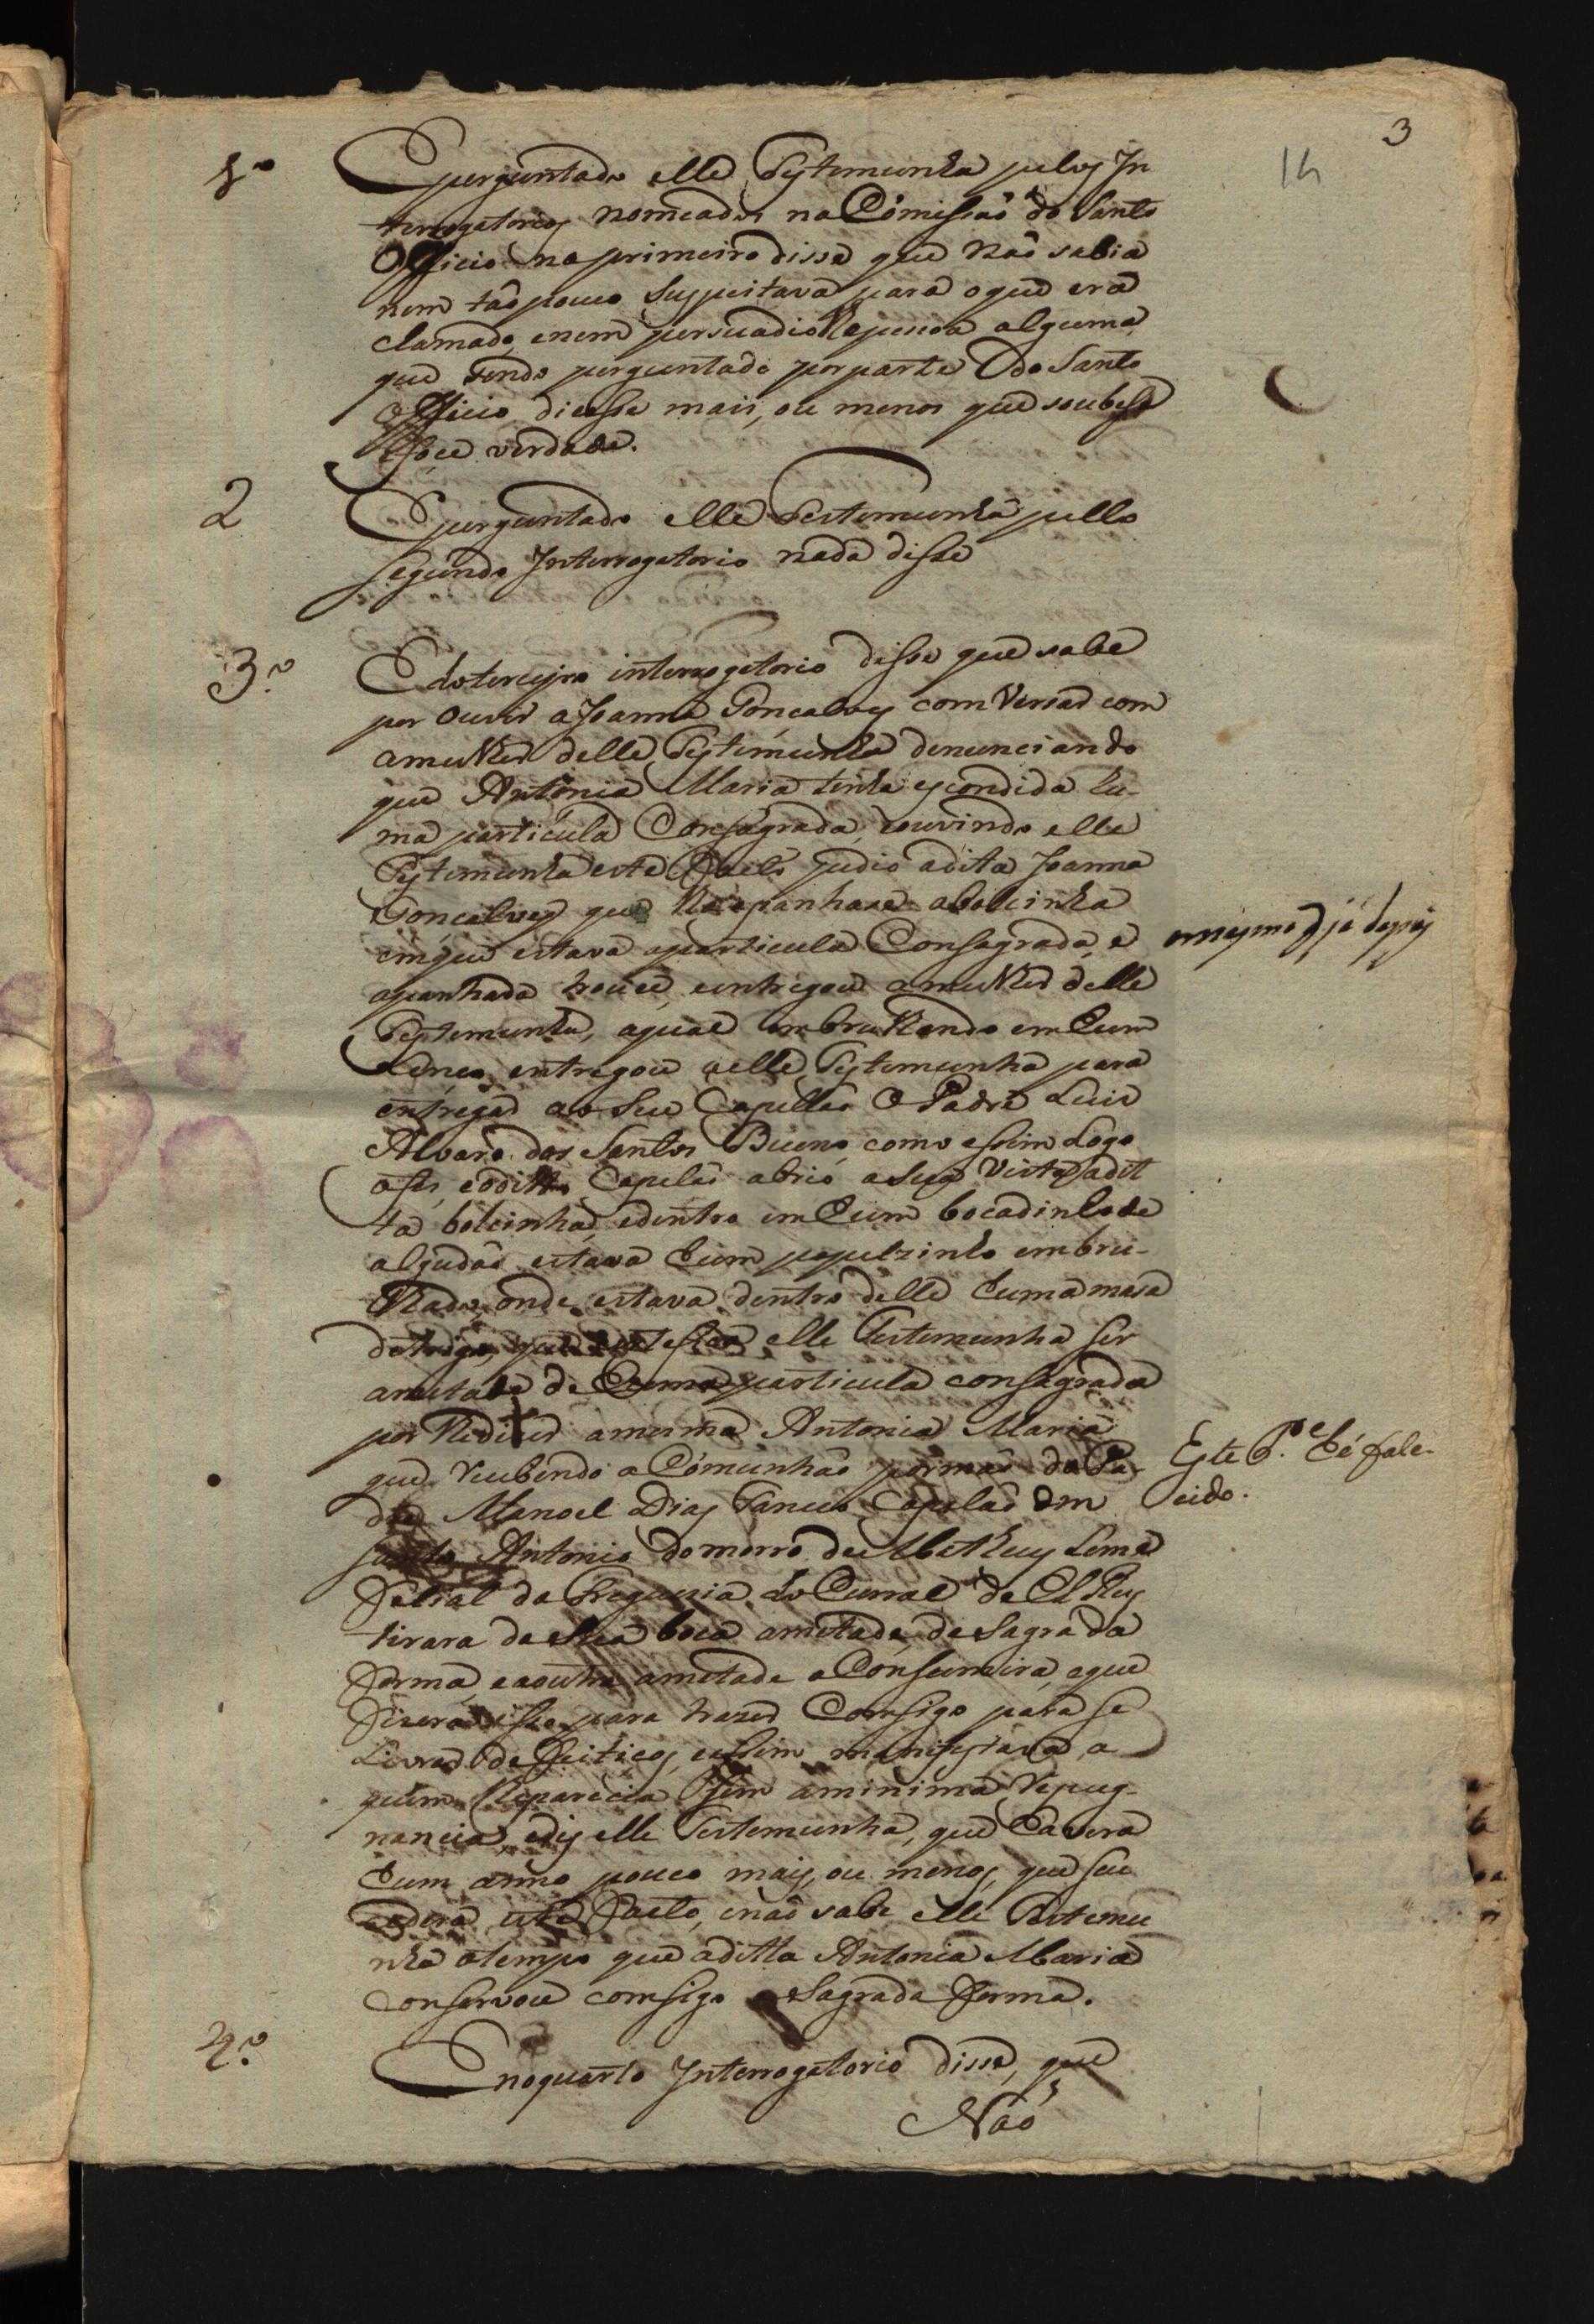 3
14
1º
E perguntado elle Testemunha pelos In
terrogatorios nomeados na Cómissaõ do Santo
Officio no primeiro disse que naõ sabia
nem taõ pouco suspeitava para o que era
clamado, enem persuadio lhe pessoa alguma
que sendo perguntado por parte Do Santo
Officio dicesse mais, ou menos que soubese
verdade.
2
E perguntado elle Testemunha pello
segundo Interrogatorio nada disse
3.º
E do terceyro interrogatorio disse que sabe
por ouvir a Joanna Goncalves com Versar com
a mulher delle Testemunha denunciando
que Antonia Maria tinha escondida hu-
ma particula Consagrada, e ouvindo elle
Testemunha este facto pedio adita Joanna
Goncalves que lhe apanhase abolcinha
em que estava aparticula Consagrada, e
apanhada trouce, eentregou amulher delle
Testemunha, aqual embrulhando em hum
Lenco entregou aelle Testemunha para
entregar ao seu Capellaõ O Padre Luis
Alvaro dos Santos Bueno como assim Logo
o fes, eoditto Capelaõ abrio asua Vista adit
ta bolcinha, edentro em hum bocadinho de
algudaõ estava hum papelzinho embru-
lhado, onde estava dentro delle huma masa
de trigo, que elle Testemunha ser
ametade de huma particula consagrada
por lhe dizer amesma Antonia Maria
que recebendo a Cómunhaõ por maõ do Pa-
dre Manoel Dias Capelaõ em
Santo Antonio do morro de Matheus Leme
Felial da Freguezia do Curral de El Rey
tirara da sua boca ametade da Sagrada
Forma, eaoutra ametade a Consumira, eque
fizera isso para trazer Comsigo para se
Livrar de feiticos, easim manifestava a
quem lhe parecia sem aminima Repug-
nancia, edis elle Testemunha, que havera
hum anno pouco mais, ou menos, que suc
cedera este facto, enaõ sabe elle Testemu
nha otempo que aditta Antonia Maria
conservou comsigo a Sagrada Forma.
Este P.e hé fale-
cido.
4.º
E no quarto Interrogatorio disse, que
Naõ